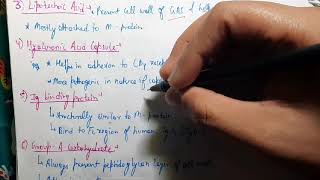 3) Lipoteichoic Acid:- Present cell wall of GAS
* Mostly attached to M-protein
4) Hyaluronic Acid Capsule:-
* Helps in adhesion to CD44
* More pathogenic in nature if
5) Ig binding protein:-
↳ Structurally similar to M-
↳ Bind to Fc region of human Ig
6) Group-A carbohydrate:-
↳ Always present peptidoglycan layer of cell